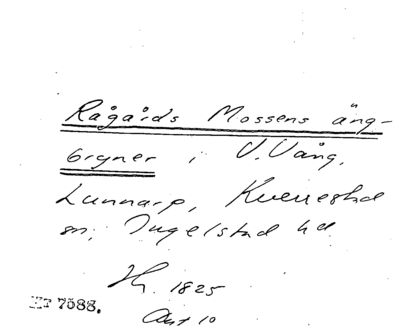 Rågårds Mossens äng-
bryner i V. Vång,
Lunnarp, Kverrestad
sn, Ingelstad hd
1825
HT 7588.
Akt 10